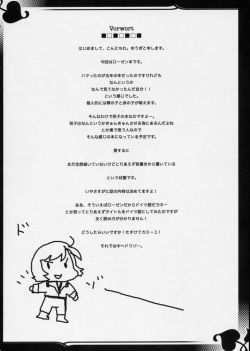 Vorwort
■□■□■□■
はじめまして、こんともれ。ゆうぎと申します。
今回はローゼン本です。
ハマったのが去年の冬だったのですけれども
なんというか
なんで見てなかったんだ自分！！
という感じでした。
個人的には翠の子と赤の子が萌えます。
そんなわけで双子の本なのですよー。
双子はなんというかきゅんきゅんさせる為にあるんだよね
とか素で言う人なので
そんな感じの本になっている予定です。
要するに
まだ全然描いていないけどとりあえず前書きから書いている
という状態です。
いやさすがに話の内容は決めてますよ！
ああ、そういえばローゼンだからドイツ語だヨネー
とか思ってとりあえずタイトルをドイツ語にしてみたのですが
全く読み方が分かりません！
どうしたらいいですか！たすけてカミーユ！
それでは中へドウゾー。
ド